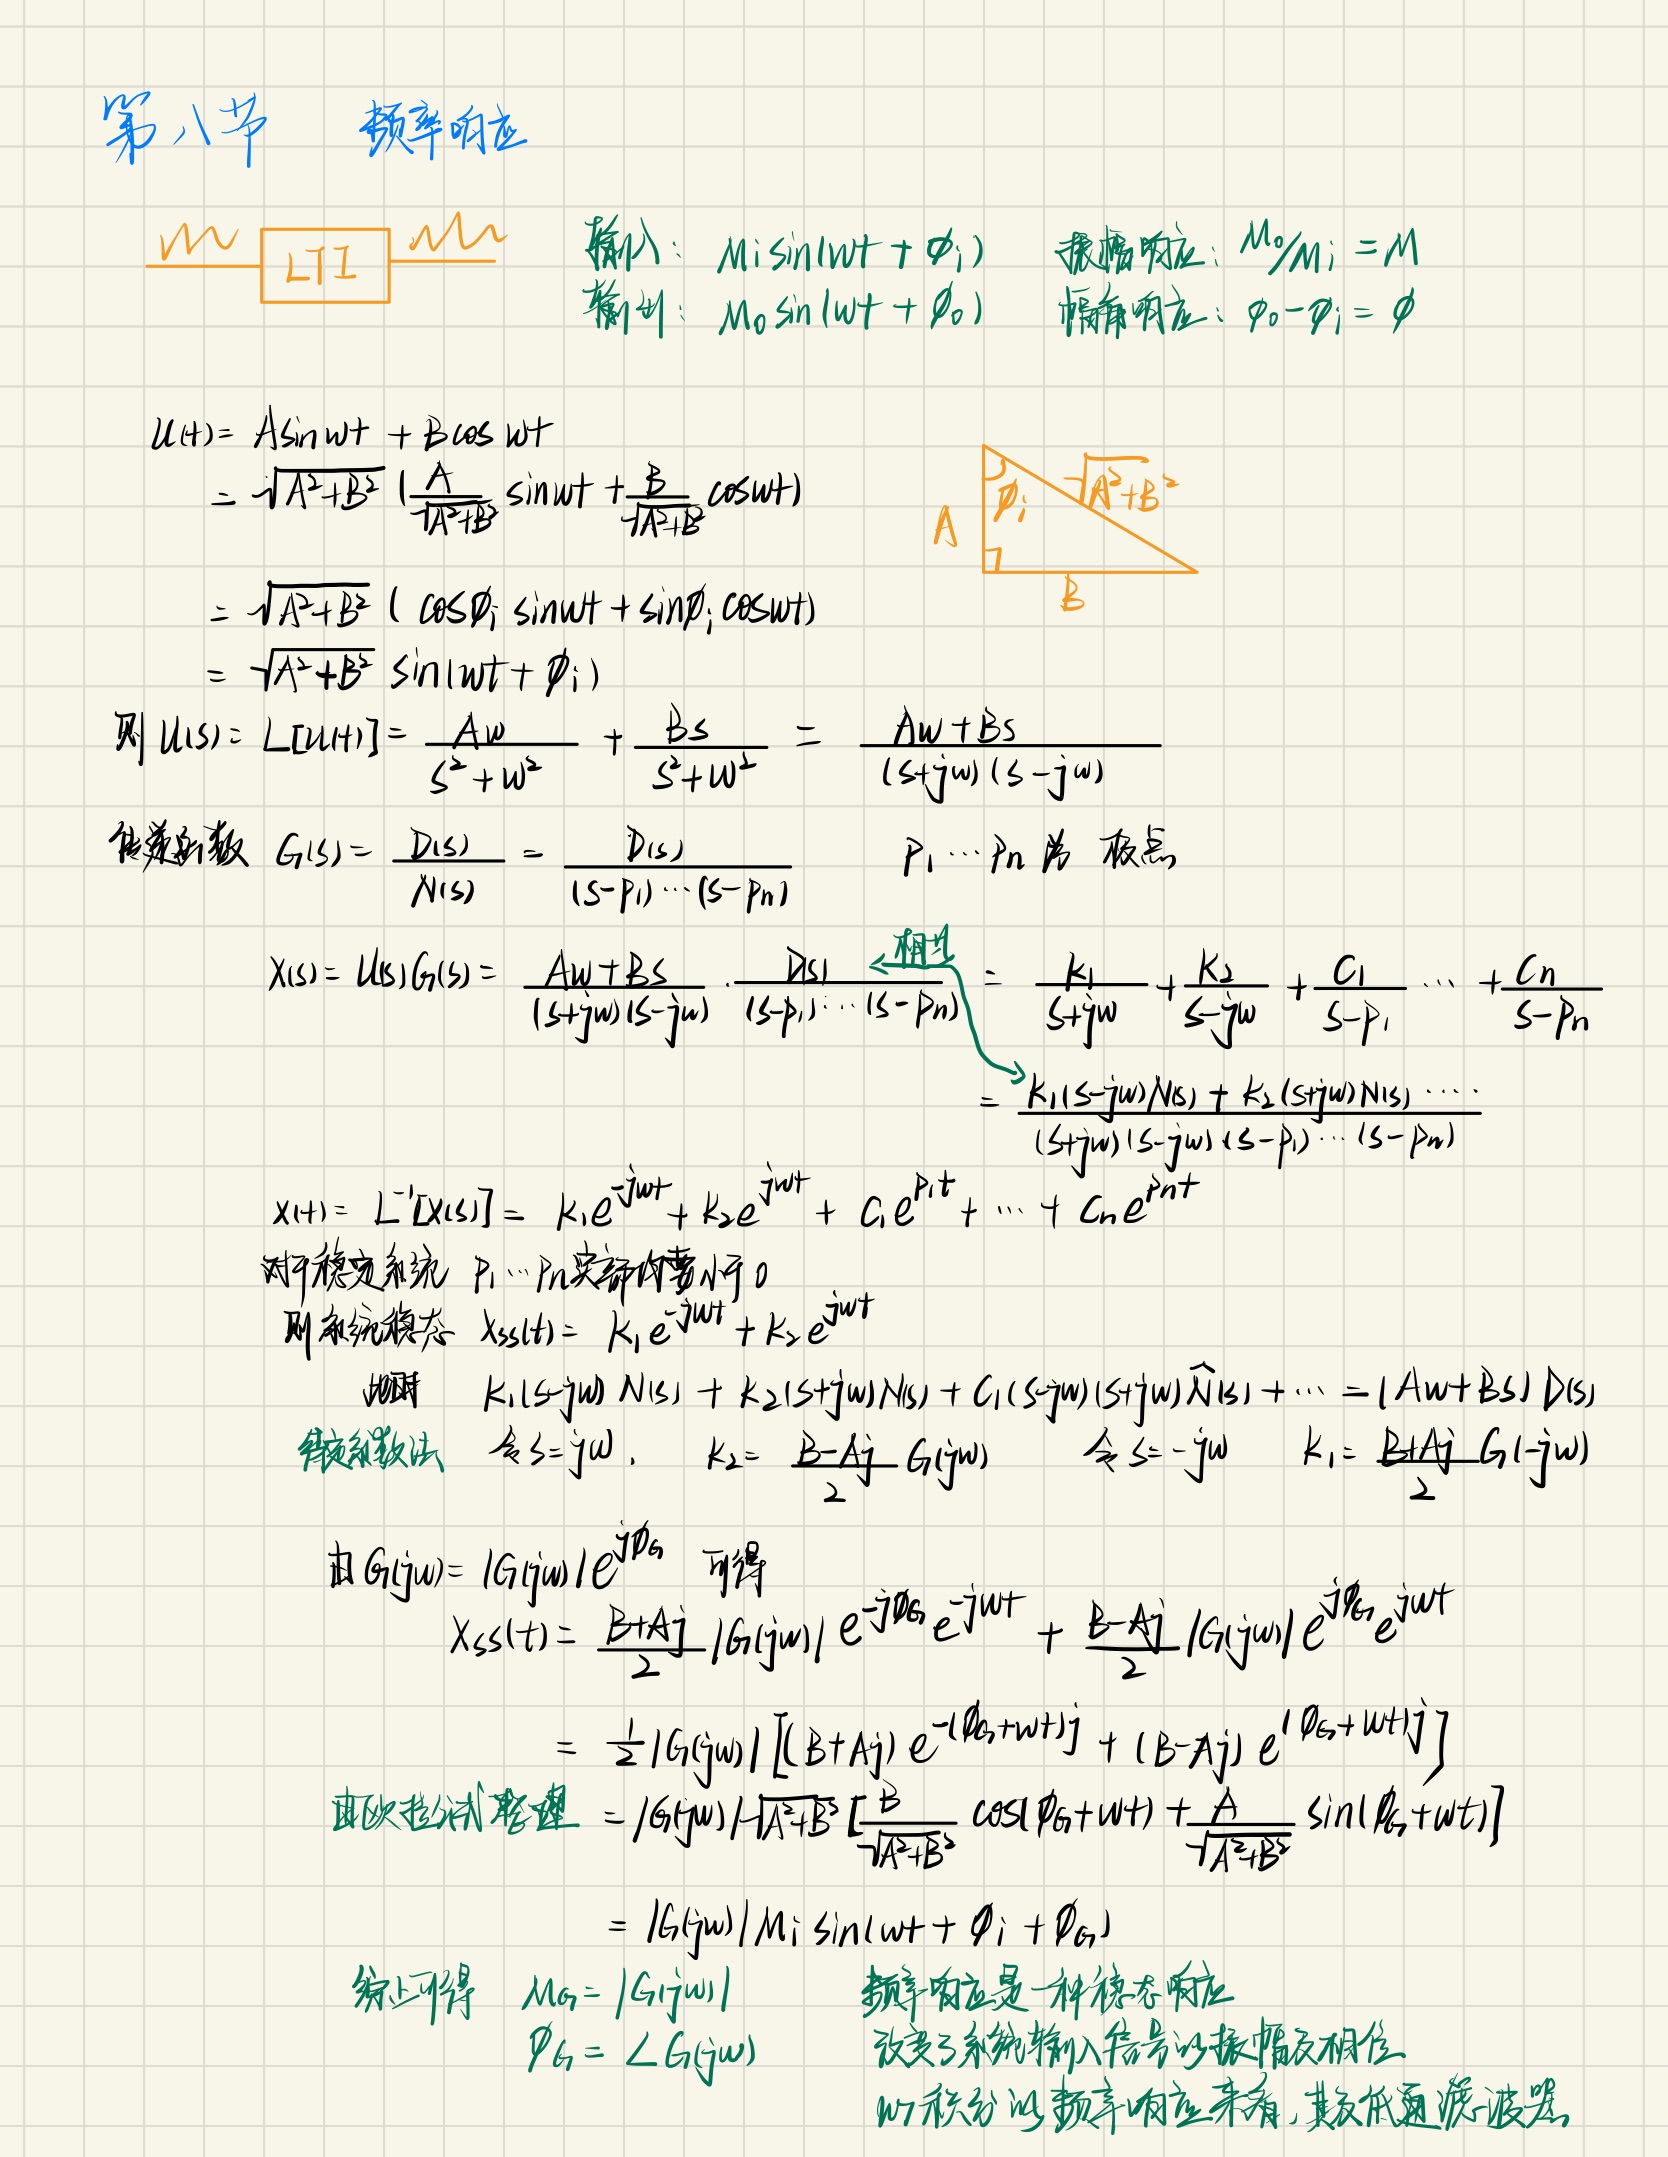 第八节 频率响应
LTI
输入: Mi sin(wt + φi) 振幅响应: Mo/Mi = M
输出: Mo sin(wt + φo) 幅角响应: φo-φi = φ
u(t) = Asinwt + Bcoswt
= √(A²+B²) (A/√(A²+B²) sinwt + B/√(A²+B²) coswt)
A φi √(A²+B²) B
= √(A²+B²) ( cosφi sinwt + sinφi coswt)
= √(A²+B²) sin(wt + φi)
则 U(s) = L[u(t)] = Aw/(s²+w²) + Bs/(s²+w²) = (Aw+Bs)/((s+jw)(s-jw))
传递函数 G(s) = D(s)/N(s) = D(s)/((s-p1)···(s-pn)) P1 ··· Pn 为 极点
X(s) = U(s)G(s) = (Aw+Bs)/((s+jw)(s-jw)) · D(s)/((s-p1)···(s-pn)) = k1/(s+jw) + k2/(s-jw) + C1/(s-p1) ··· + Cn/(s-pn)
相比
= (k1(s-jw)N(s) + k2(s+jw)N(s) ·····)/((s+jw)(s-jw)(s-p1)···(s-pn))
x(t) = L⁻¹[X(s)] = k1e^(-jwt) + k2e^(jwt) + C1e^(p1t) + ··· + Cne^(pnt)
对于稳定系统 P1···Pn实部均要小于0
则系统稳态 Xss(t) = k1e^(-jwt) + k2e^(jwt)
此时 k1(s-jw)N(s) + k2(s+jw)N(s) + C1(s-jw)(s+jw)N̂(s) + ··· = (Aw+Bs)D(s)
待定系数法 令s=jw, k2 = (B-Aj)/2 G(jw) 令s=-jw k1 = (B+Aj)/2 G(-jw)
由G(jw) = |G(jw)|e^(jφG) 可得
Xss(t) = (B+Aj)/2 |G(jw)| e^(-jφG) e^(-jwt) + (B-Aj)/2 |G(jw)| e^(jφG) e^(jwt)
= 1/2 |G(jw)| [(B+Aj) e^(-(φG+wt)j) + (B-Aj) e^((φG+wt)j)]
由欧拉公式整理 = |G(jw)|√(A²+B²) [B/√(A²+B²) cos(φG+wt) + A/√(A²+B²) sin(φG+wt)]
= |G(jw)| Mi sin(wt + φi + φG)
综上可得 MG = |G(jw)| 频率响应是一种稳态响应
φG = ∠G(jw) 改变了系统输入信号的振幅及相位
以积分的频率响应来看,其为低通滤波器